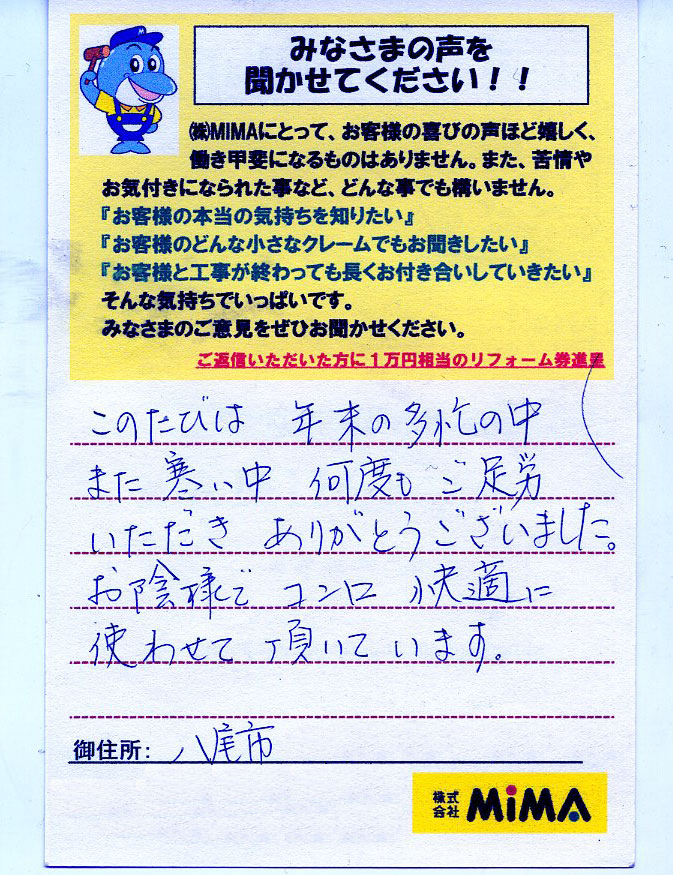 みなさまの声を
聞かせてください！！
㈱MIMAにとって、お客様の喜びの声ほど嬉しく、
働き甲斐になるものはありません。また、苦情や
お気付きになられた事など、どんな事でも構いません。
『お客様の本当の気持ちを知りたい』
『お客様のどんな小さなクレームでもお聞きしたい』
『お客様と工事が終わっても長くお付き合いしていきたい』
そんな気持ちでいっぱいです。
みなさまのご意見をぜひお聞かせください。
ご返信いただいた方に１万円相当のリフォーム券進呈
このたびは 年末の多忙の中
また寒い中 何度も ご足労
いただき ありがとうございました。
お陰様で コンロ 快適に
使わせて頂いています。
御住所: 八尾市
株式会社 MiMA